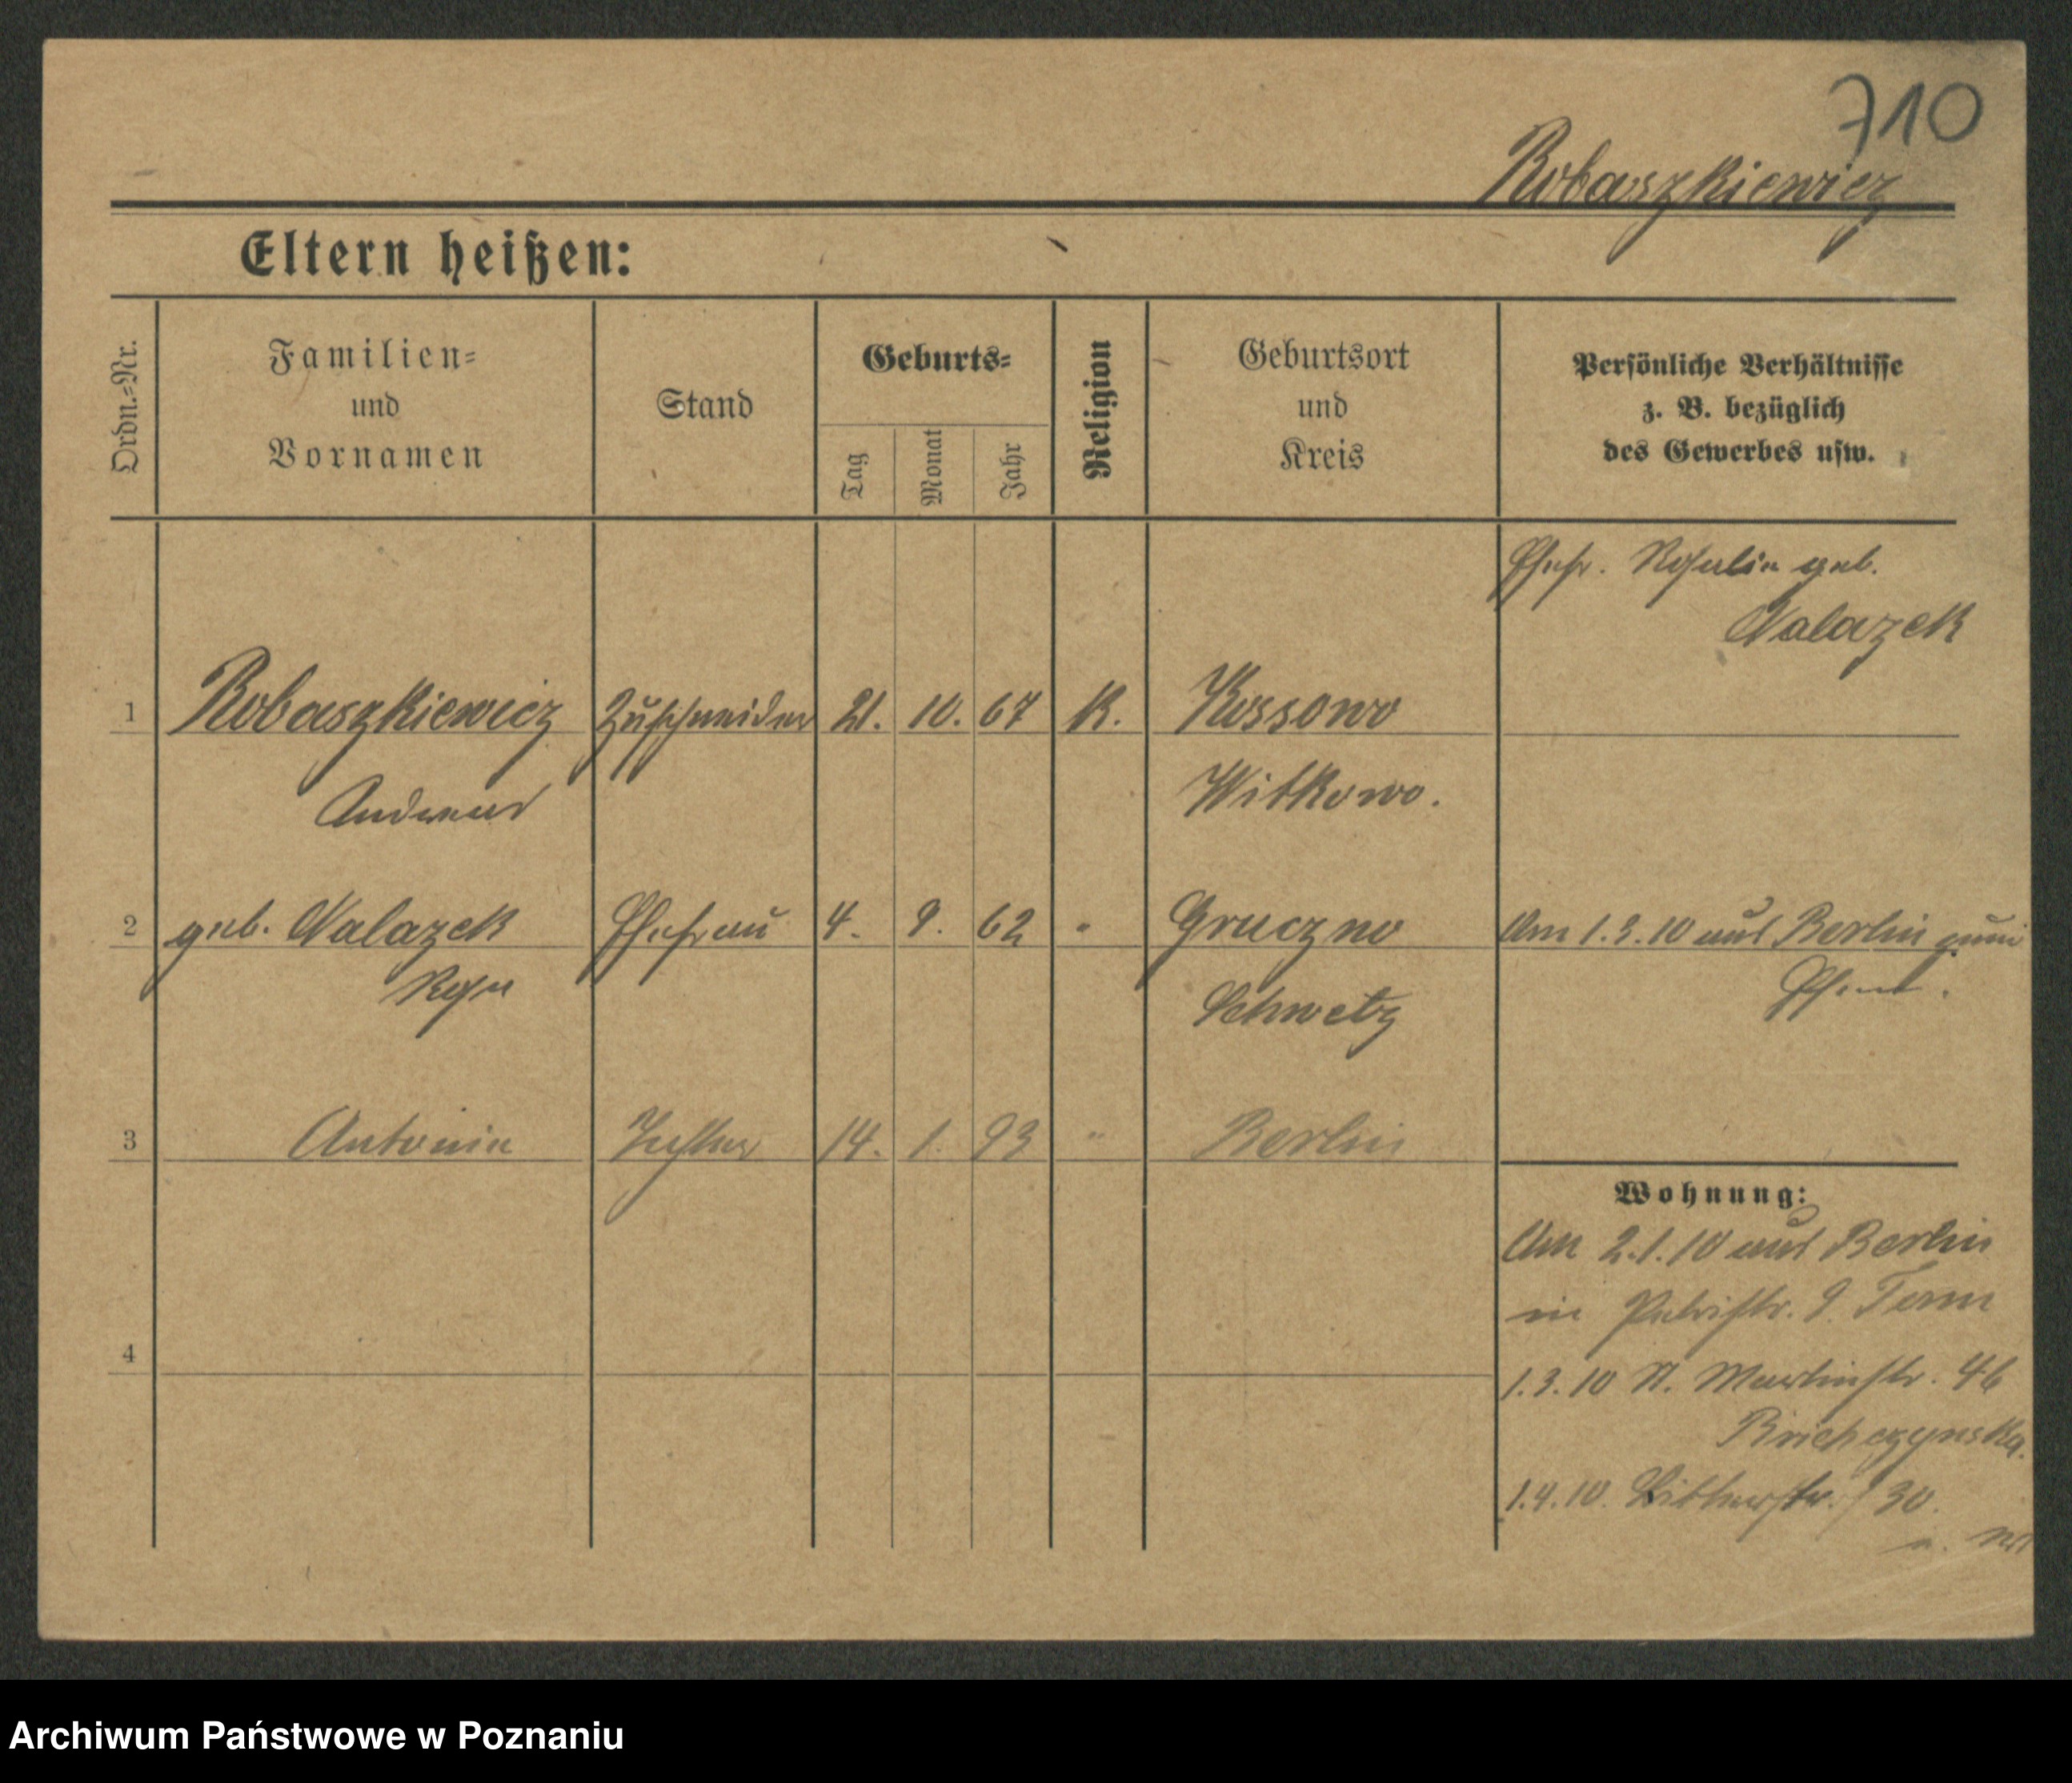 710
Robaszkiewicz
Eltern heißen:
Ordn.=Nr.
Familien=
und
Vornamen
Stand
Geburts=
Tag
Monat
Jahr
Religion
Geburtsort
und
Kreis
Persönliche Verhältnisse
z. B. bezüglich
des Gewerbes usw.
Ehefr. Rosalie geb.
Nalazek
1 Robaszkiewicz Zuschneider 21. 10. 67 K. Kossowo
Andreas Witkowo.
2 geb. Nalazek Ehefrau 4. 9. 62 " Gruczno Am 1.3.10 aus Berlin zum
Rosa Schwetz Ehem.
3 Antonie Tochter 14. 1. 93 " Berlin
Wohnung:
Am 2.1.10 aus Berlin
in Petristr. 9
4
1.3.10 St. Martinstr. 46
1.4.10. Ritterstr. 30.
Archiwum Państwowe w Poznaniu